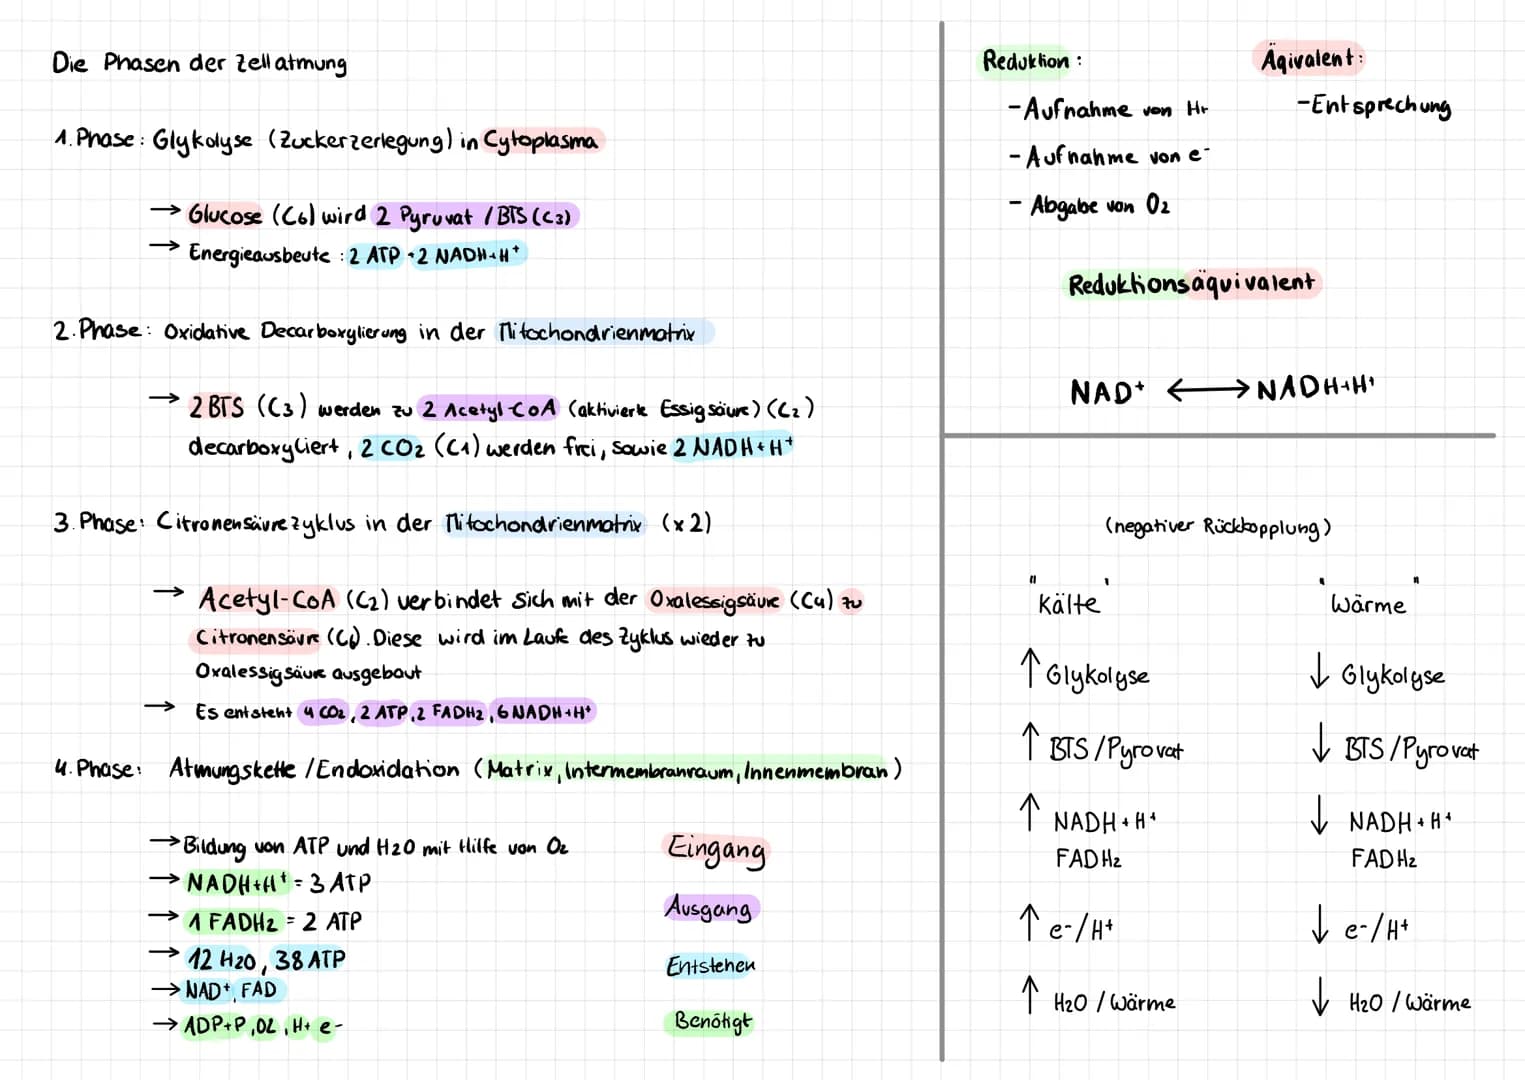 Die Phasen der Zellatmung
1. Phase: Glykolyse (Zuckerzerlegung) in Cytoplasma
→ Glucose (C6) wird 2 Pyruvat / BTS (C3)
→ Energieausbeute : 2 ATP + 2 NADH+H⁺
2. Phase: Oxidative Decarboxylierung in der Mitochondrienmatrix
→ 2 BTS (C3) werden zu 2 Acetyl-CoA (aktivierte Essigsäure) (C2)
decarboxyliert, 2 CO2 (C1) werden frei, sowie 2 NADH+H⁺
3. Phase: Citronensäurezyklus in der Mitochondrienmatrix (x2)
→ Acetyl-CoA (C2) verbindet sich mit der Oxalessigsäure (C4) zu
Citronensäure (C6). Diese wird im Laufe des Zyklus wieder zu
Oxalessigsäure ausgebaut
→ Es entsteht 4 CO2, 2 ATP, 2 FADH2, 6 NADH+H⁺
4. Phase: Atmungskette / Endoxidation (Matrix, Intermembranraum, Innenmembran)
→ Bildung von ATP und H2O mit Hilfe von O2
→ NADH+H⁺ = 3 ATP
→ 1 FADH2 = 2 ATP
→ 12 H2O, 38 ATP
→ NAD⁺, FAD
→ ADP+P, O2, H+ e-
Eingang
Ausgang
Entstehen
Benötigt
Reduktion :
- Aufnahme von H+
- Aufnahme von e⁻
- Abgabe von O2
Äqivalent:
- Entsprechung
Reduktionsäquivalent
NAD⁺ ⟷ NADH+H⁺
(negativer Rückkopplung)
"Kälte"
↑ Glykolyse
↑ BTS / Pyrovat
↑ NADH+H⁺
FADH2
↑ e-/H+
↑ H2O / Wärme
"Wärme"
↓ Glykolyse
↓ BTS / Pyrovat
↓ NADH+H⁺
FADH2
↓ e-/H+
↓ H2O / Wärme